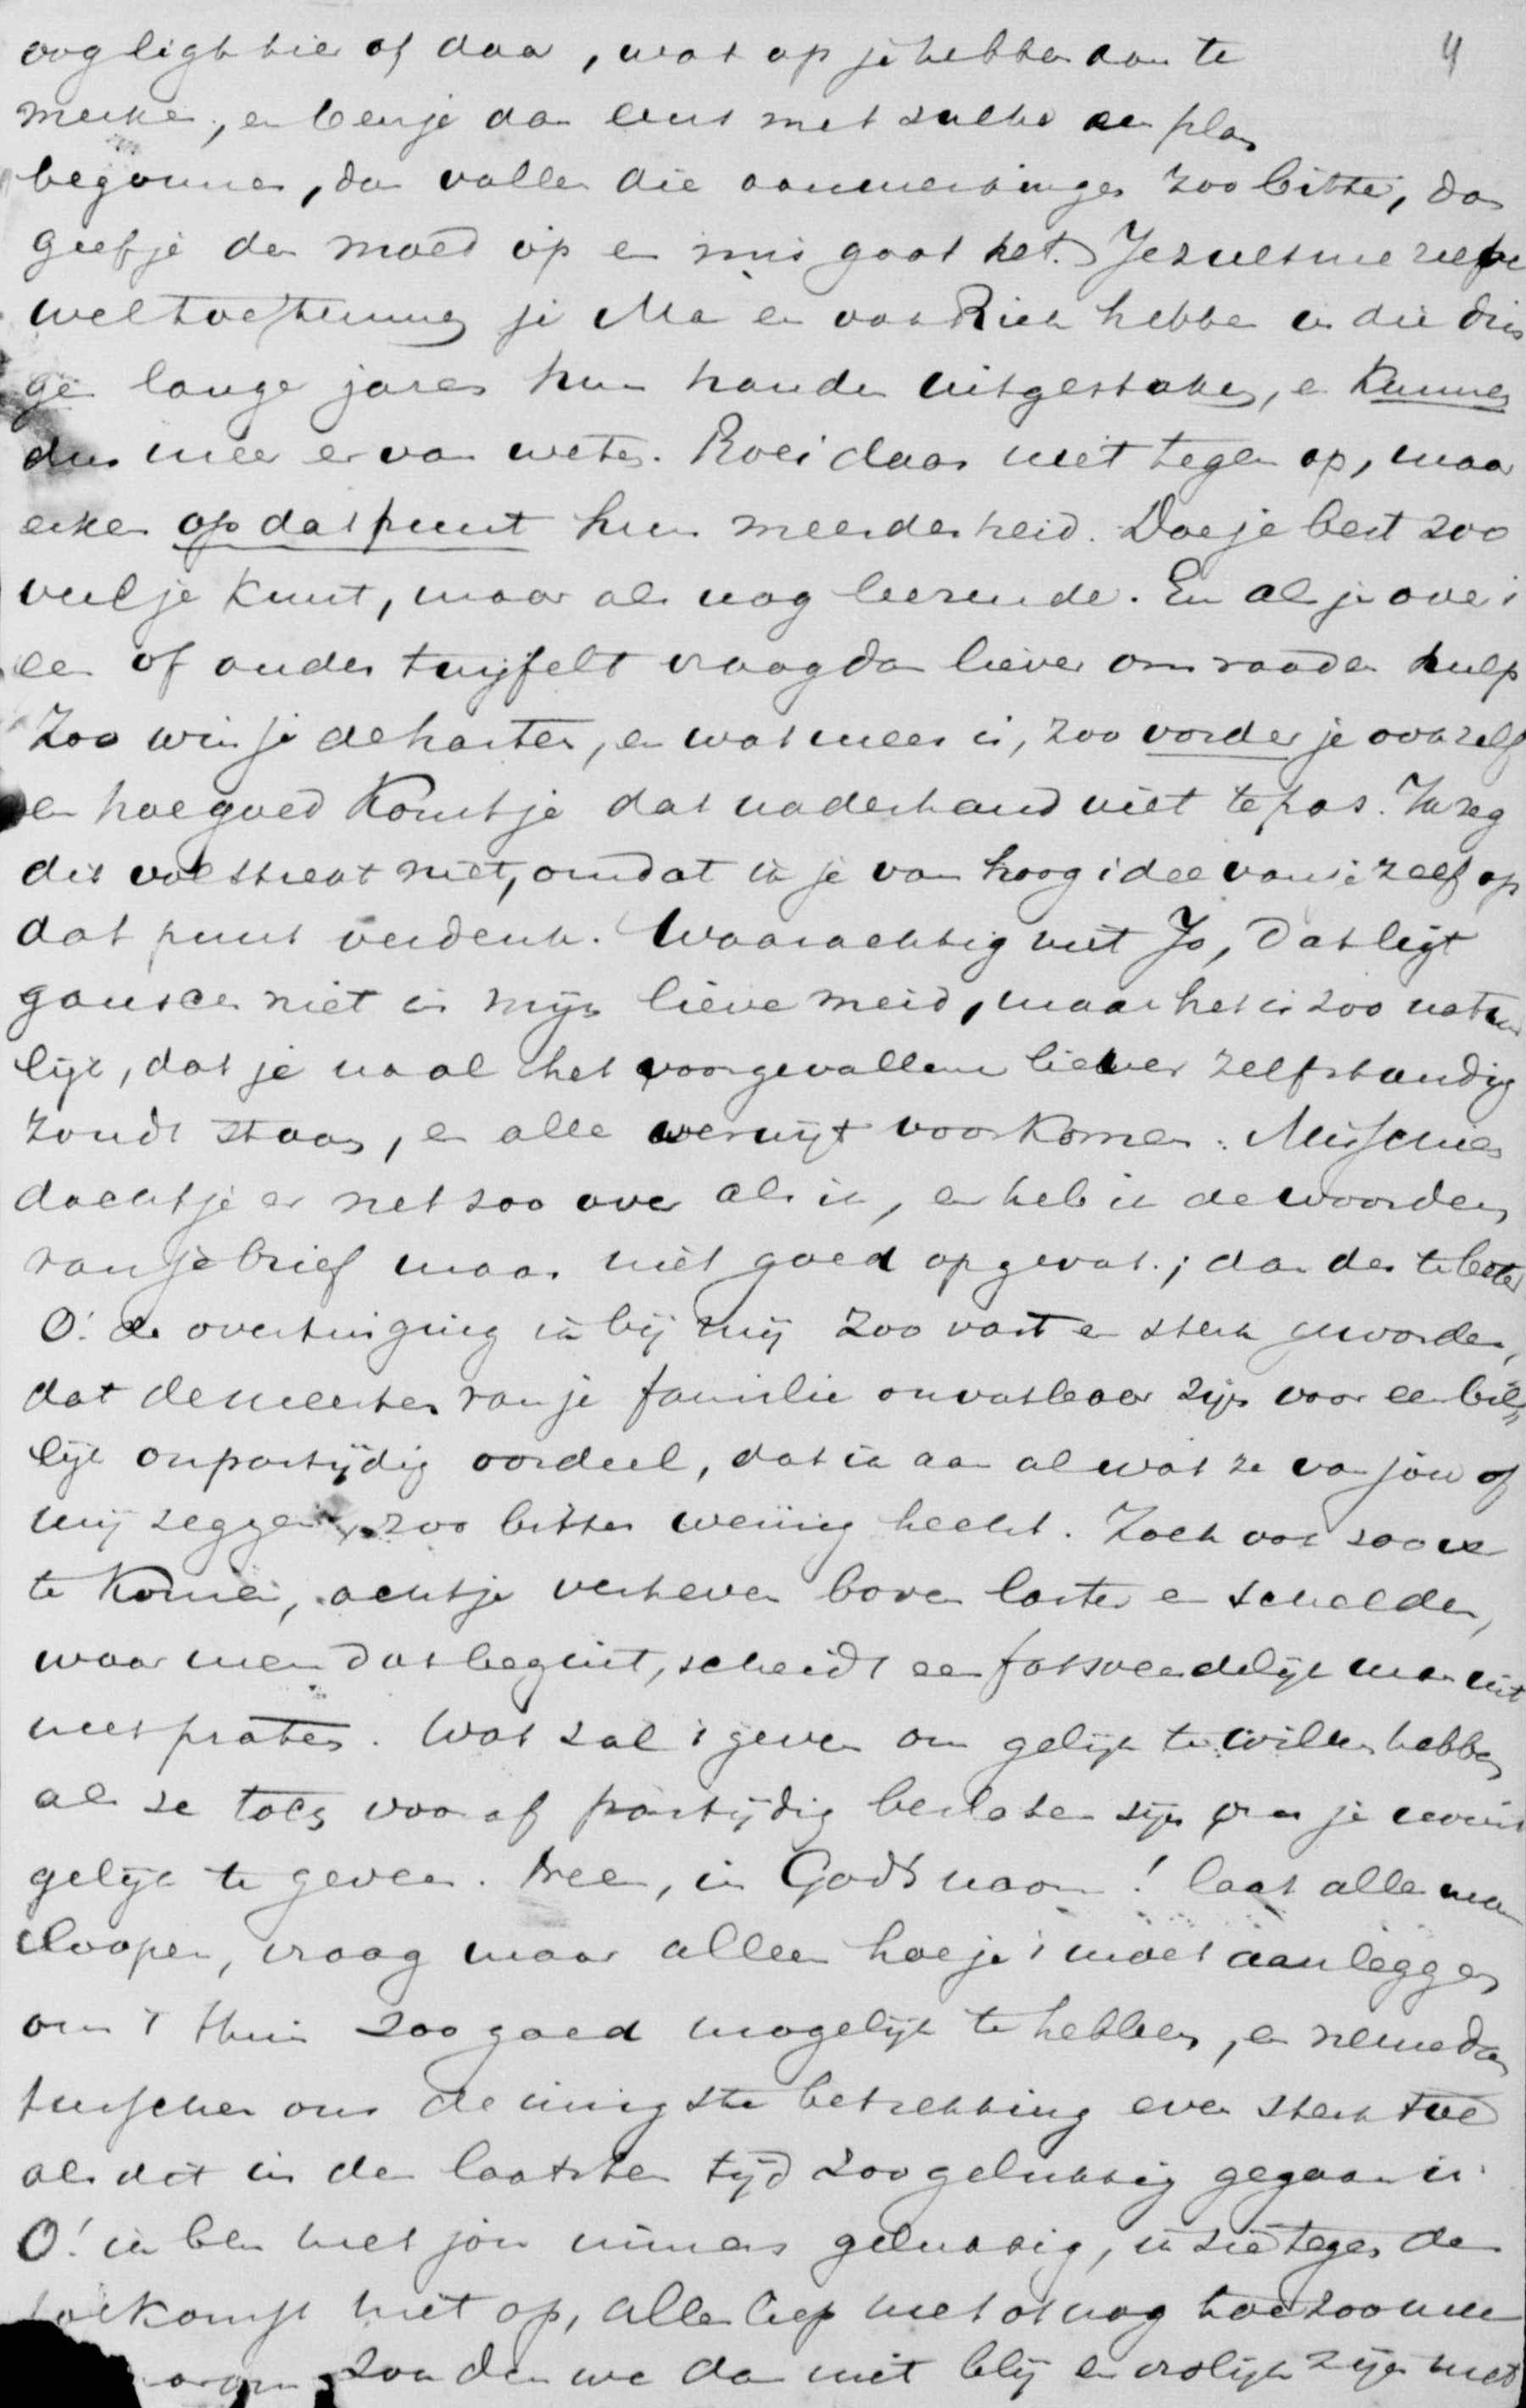 oog ligt hier of daar, wat op je hebben aan te 4
merken, en ben je dan eens met zulke een plan
begonnen, dan vallen die aanmerkingen zoo bitter, dan
geef je den moed op en mis gaat het. Je zult me zelve
wel toestemmen je Ma en ook Riek hebben in die din
gen lange jaren hun handen uitgestoken, en kunnen
dus meer er van weten. Roei daar niet tegen op, maar
erken op dat punt hun meerderheid. Doe je best zoo
veel je kunt, maar als nog leerende. En als je over 't
een of ander twijfelt vraag dan liever om raad en hulp
Zoo win je de harten, en wat meer is, zoo vorder je ook zelf
en hoe goed komt je dat naderhand niet te pas. Ik zeg
dit volstrekt niet, omdat ik je van hoog idee van je zelf op
dat punt verdenk. Waarachtig niet Jo, dat ligt
gansch niet in mijn lieve meid, maar het is zoo natuur
lijk, dat je na al het voorgevallene liever zelfstandig
zoudt staan, en alle verwijt voorkomen. Misschien
dacht je er net zoo over als ik, en heb ik de woorden
van je brief maar niet goed opgevat; dan des te beter
O! de overtuiging is bij mij zoo vast en sterk geworden,
dat de meesten van je familie onvatbaar zijn voor een bil
lijk onpartijdig oordeel, dat ik aan al wat ze van jou of
mij zeggen, zoo bitter weinig hecht. Zoek ook zoover
te komen, acht je verheven boven laster en schelden,
waar men dat begint, scheidt een fatsoendelijk man uit
met praten. Wat zal 't geven om gelijk te willen hebben
als ze toch vooraf partijdig besloten zijn om je nooit
gelijk te geven. Nee, in Gods naam! laat alleman
loopen, vraag maar alleen hoe je 't moet aanleggen
om 't thuis zoo goed mogelijk te hebben, en neme dan
tusschen ons de innigste betrekking even sterk toe
als dit in den laatsten tijd zoo gelukkig gegaan is.
O! ik ben met jou immers gelukkig, ik zie tegen de
toekomst niet op, alles liep met ot nog toe zoo mee
zouden we dan niet blij en vrolijk zijn met